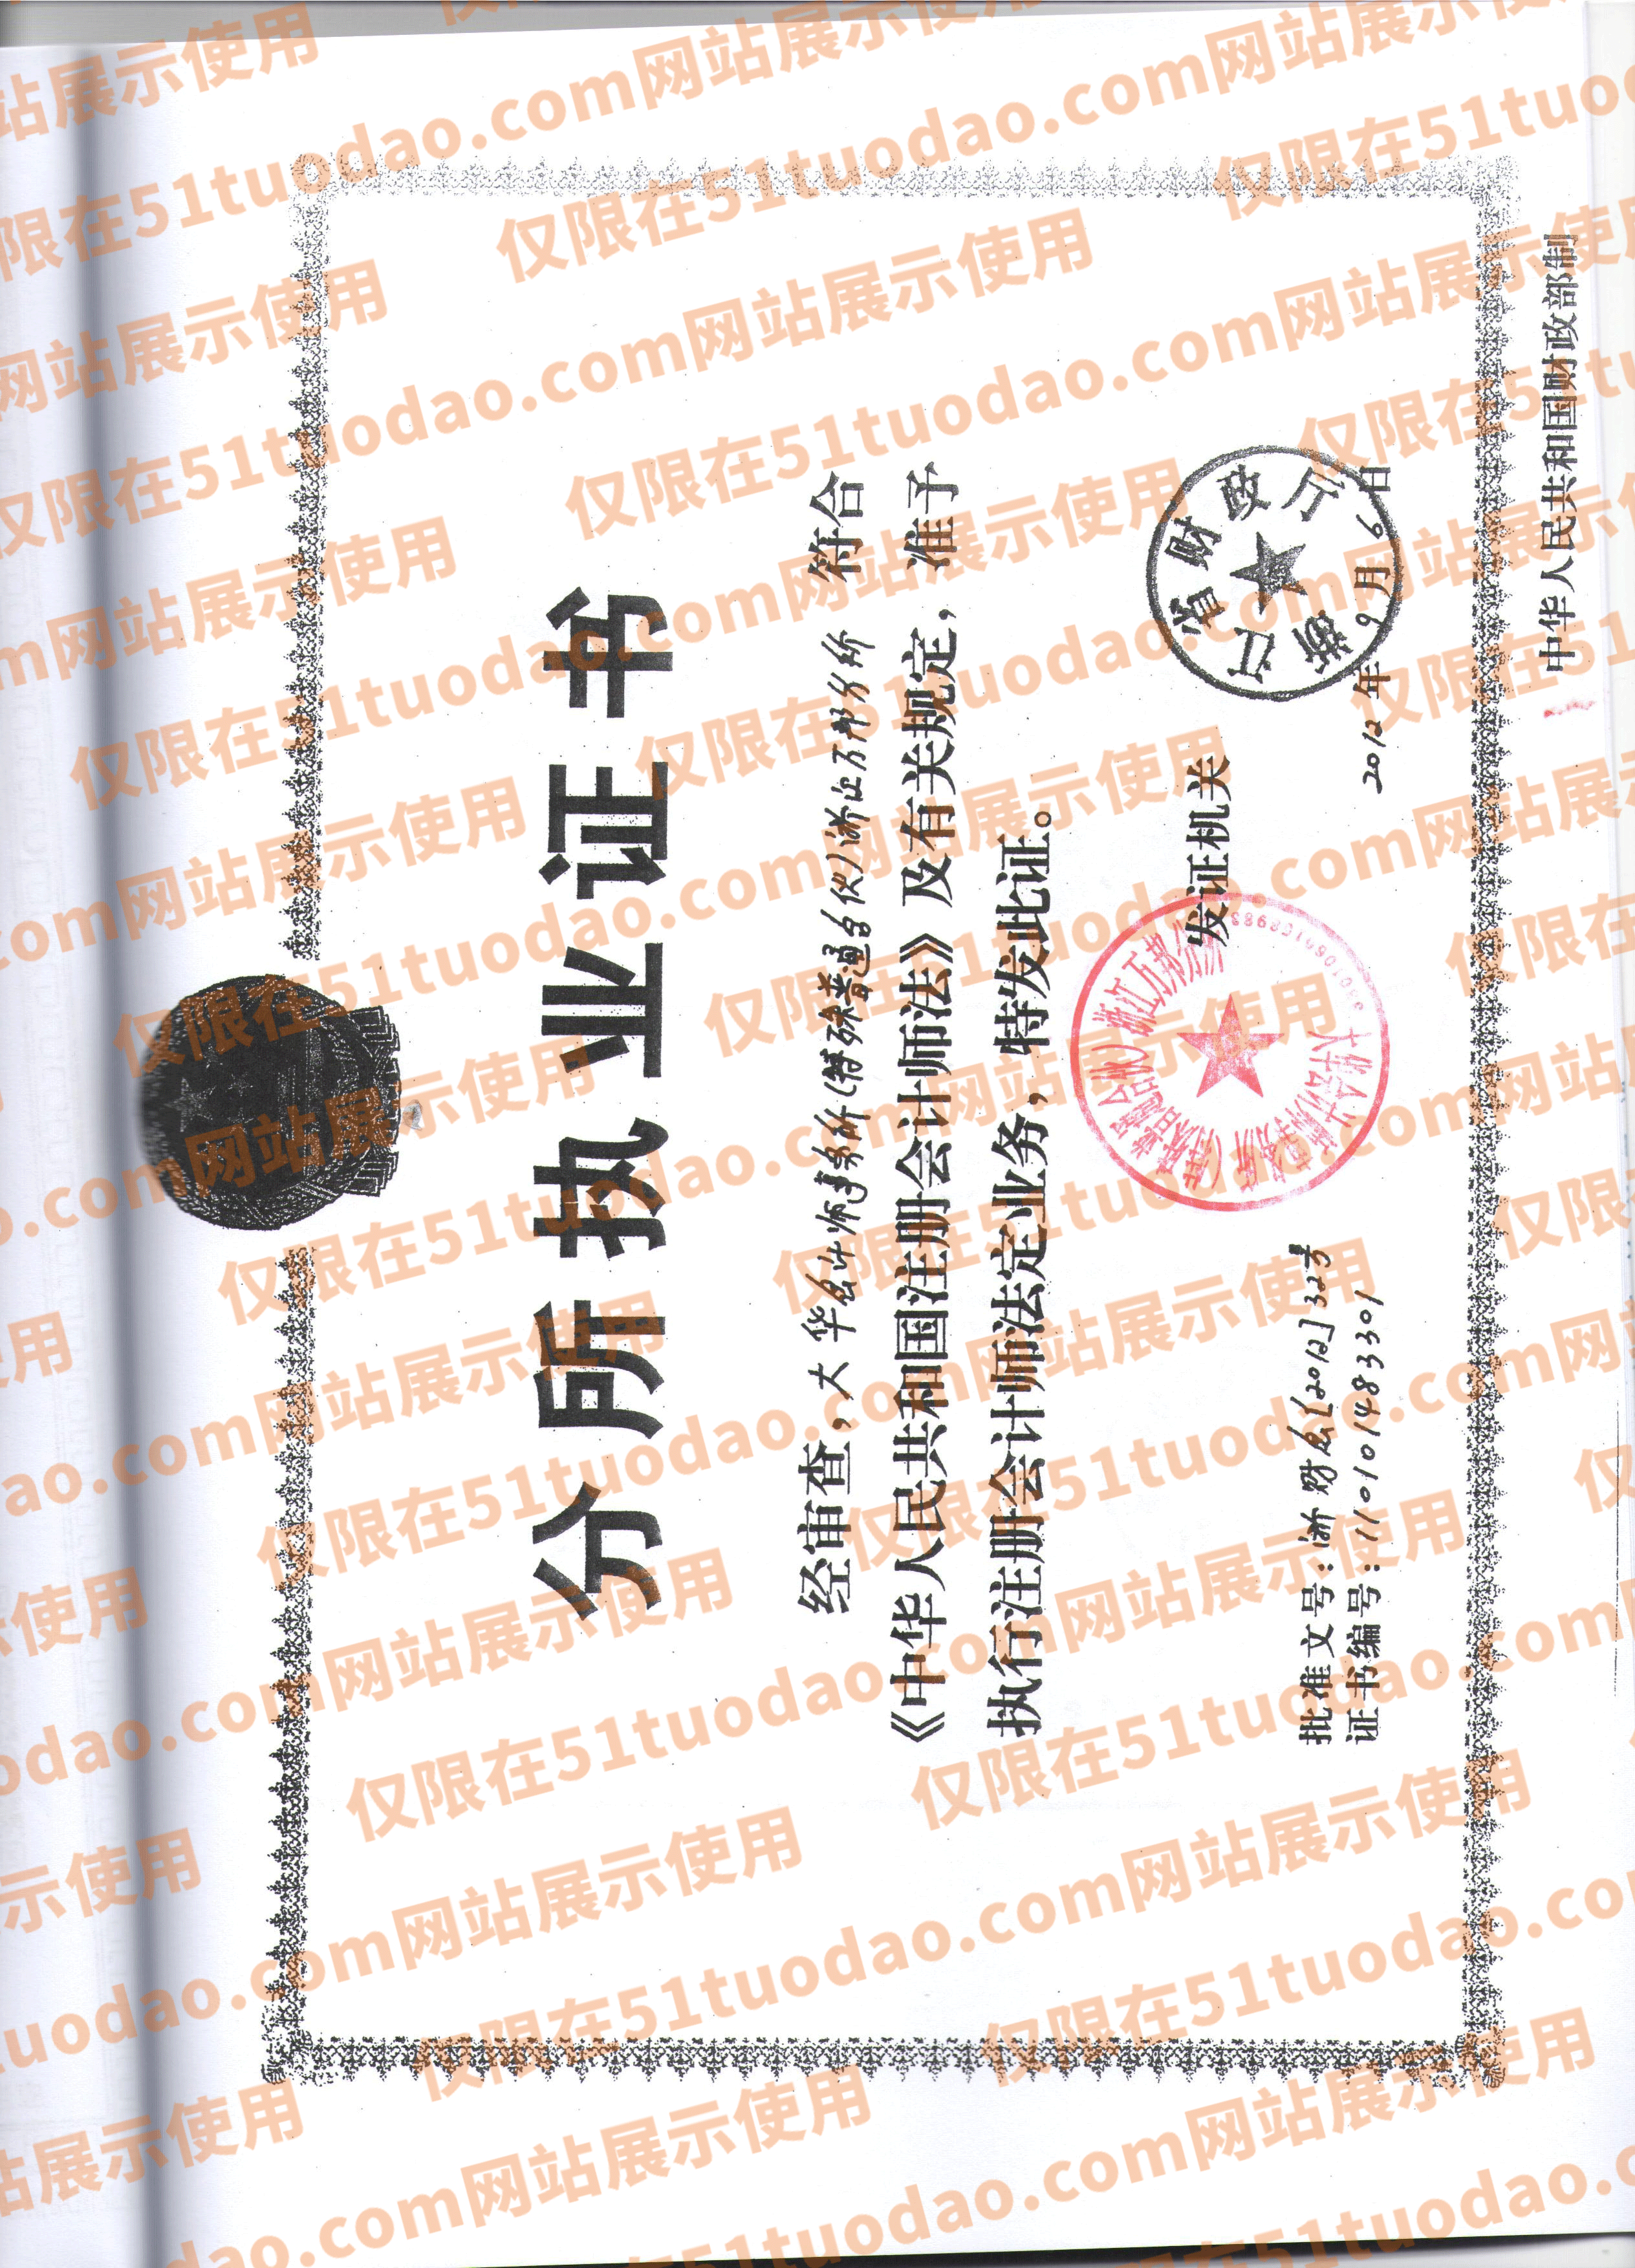 分所执业证书
经审查，大华会计师事务所（特殊普通合伙）浙江万邦分所 符合
《中华人民共和国注册会计师法》及有关规定，准予
执行注册会计师法定业务，特发此证。
发证机关
浙江省财政厅
2012年9月6日
大华会计师事务所（特殊普通合伙）浙江万邦分所
批准文号：浙财会[2012]32号
证书编号：110101483301
中华人民共和国财政部制
仅限在51tuodao.com网站展示使用